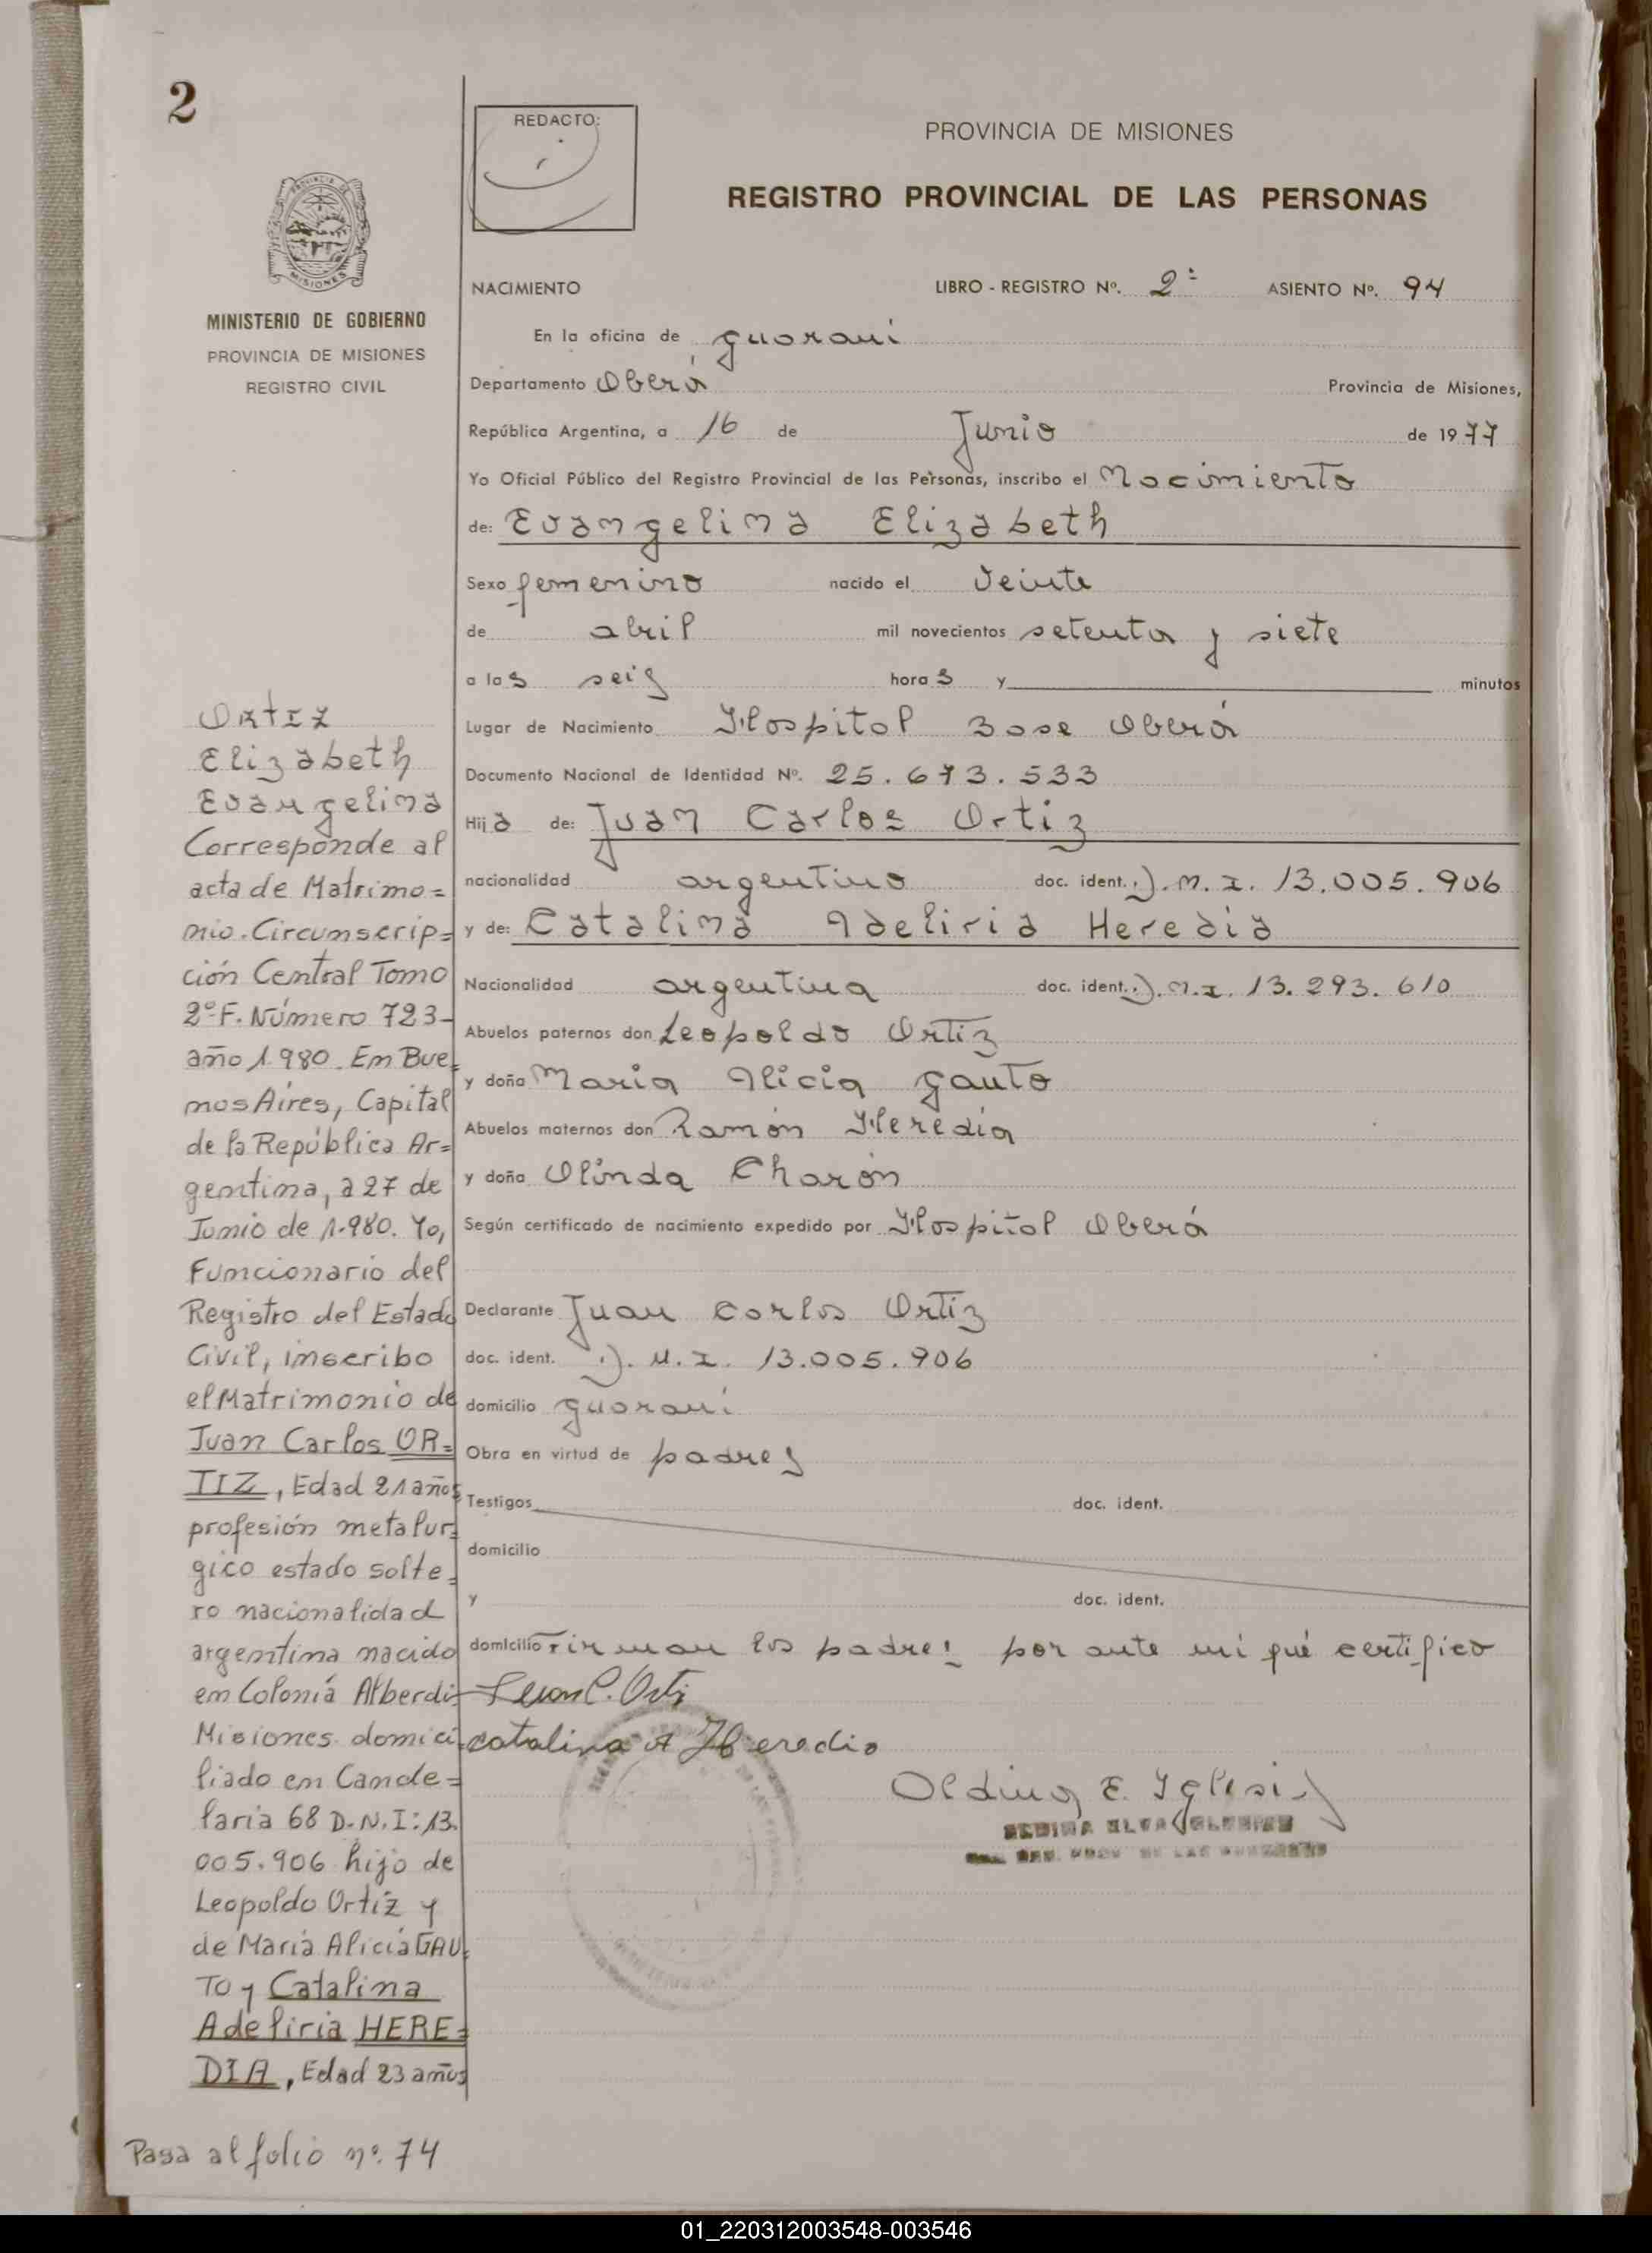 2
REDACTO:
PROVINCIA DE MISIONES
REGISTRO PROVINCIAL DE LAS PERSONAS
PROVINCIA DE
MISIONES
MINISTERIO DE GOBIERNO
PROVINCIA DE MISIONES
REGISTRO CIVIL
NACIMIENTO LIBRO - REGISTRO Nº. 2º ASIENTO Nº. 94
En la oficina de guarani
Departamento Oberá Provincia de Misiones,
República Argentina, a 16 de Junio de 1977
Yo Oficial Público del Registro Provincial de las Personas, inscribo el Nacimiento
de: Evangelina Elizabeth
Sexo femenino nacido el veinte
de abril mil novecientos setenta y siete
a las seis horas y minutos
Lugar de Nacimiento Hospital Base Oberá
Documento Nacional de Identidad Nº. 25.673.533
Hija de: Juan Carlos Ortiz
nacionalidad argentino doc. ident. D.N.I. 13.005.906
y de: Catalina Adeliria Heredia
Nacionalidad argentina doc. ident. D.N.I. 13.293.610
Abuelos paternos don Leopoldo Ortiz
y doña Maria Alicia gauto
Abuelos maternos don Ramón Heredia
y doña Olinda Charón
Según certificado de nacimiento expedido por Hospital Oberá
Declarante Juan Carlos Ortiz
doc. ident. D.N.I. 13.005.906
domicilio guarani
Obra en virtud de padres
Testigos doc. ident.
domicilio
y doc. ident.
domicilio Firman los padres por ante mi qué certifico
Juan C. Orti
catalina A Heredia
Oldina E. Iglesias
Ortiz
Elizabeth
Evangelina
Corresponde al
acta de Matrimo=
nio. Circunscrip=
ción Central Tomo
2º F. Número 723-
año 1.980. En Bue=
nos Aires, Capital
de la República Ar=
gentina, a 27 de
Junio de 1.980. Yo,
Funcionario del
Registro del Estado
Civil, inscribo
el Matrimonio de
Juan Carlos OR=
TIZ, Edad 21 años
profesión metalur=
gico estado solte=
ro nacionalidad
argentina nacido
en Colonia Alberdi-
Misiones domici-
liado en Cande=
laria 68 D.N.I: 13.
005.906 hijo de
Leopoldo Ortiz y
de Maria Alicia GAU=
TO y Catalina
Adeliria HERE=
DIA, Edad 23 años
Pasa al folio nº. 74
01_220312003548-003546